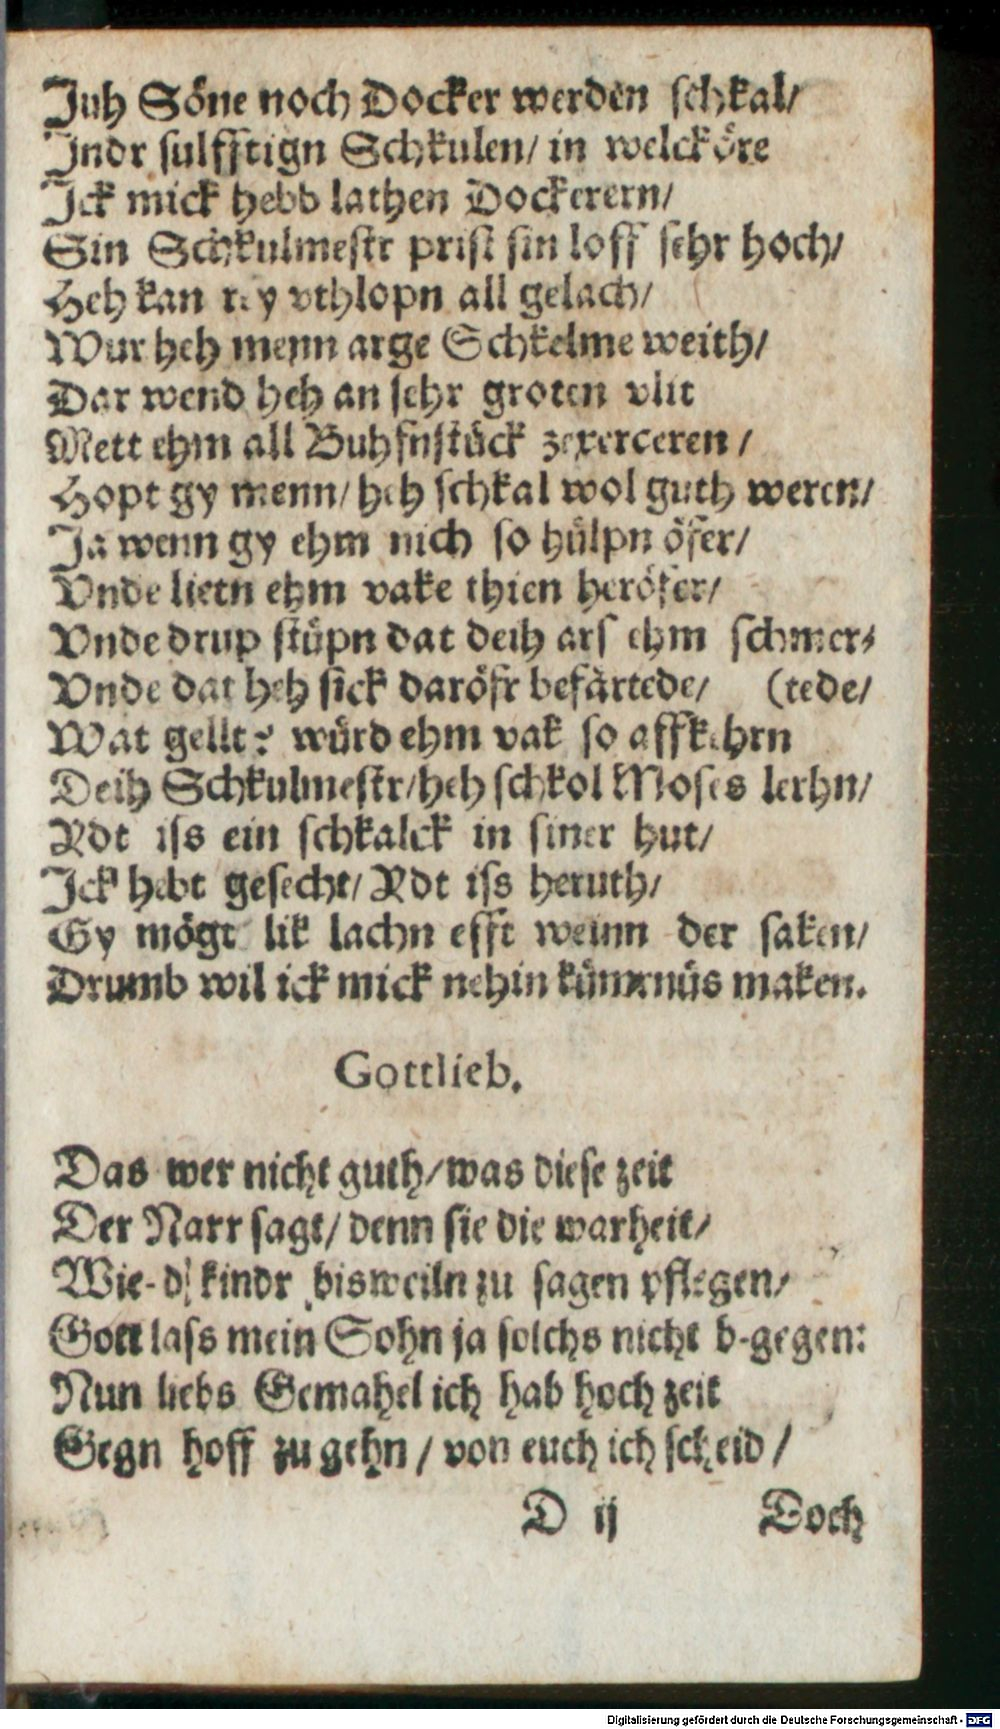 Juh Söne noch Docker werden schkal/
Jndr sulfftign Schkulen/ in welck öre
Jck mick hebb lathen Dockerern/
Sin Schkulmestr prist sin loff sehr hoch/
Heh kan vthlopn all gelach/
Wur heh menn arge Schkelme weith/
Dar wend heh an sehr groten vlit
Mett ehm all Buhfnstück zexerceren /
Hopt gy menn/ heh schkal wol guth weren/
Ja wenn gy ehm nich so hülpn öfer/
Vnde lietn ehm vake thien heröfer/
Vnde drup stüpn dat deih ars ehm schmer-
Vnde dat heh sick daröfr befärtede/ (tede/
Wat gellt? würd ehm vak so affkehrn
Deih Schkulmestr/ heh schkol Moses lerhn/
Rdt iss ein schkalck in siner hut/
Jck hebt gesecht/ Rdt iss heruth/
Gy mögt lik lachn efft weinn der saken/
Drumb wil ick mick nehin kümrnüs maken.
Gottlieb.
Das wer nicht guth/ was diese zeit
Der Narr sagt/ denn sie die warheit/
Wie- d kindr bisweiln zu sagen pflegen/
Gott lass mein Sohn ja solchs nicht b-gegen:
Nun liebs Gemahel ich hab hoch zeit
Gegn hoff zu gehn / von euch ich scheid /
D ij Doch
Digitalisierung gefördert durch die Deutsche Forschungsgemeinschaft - DFG